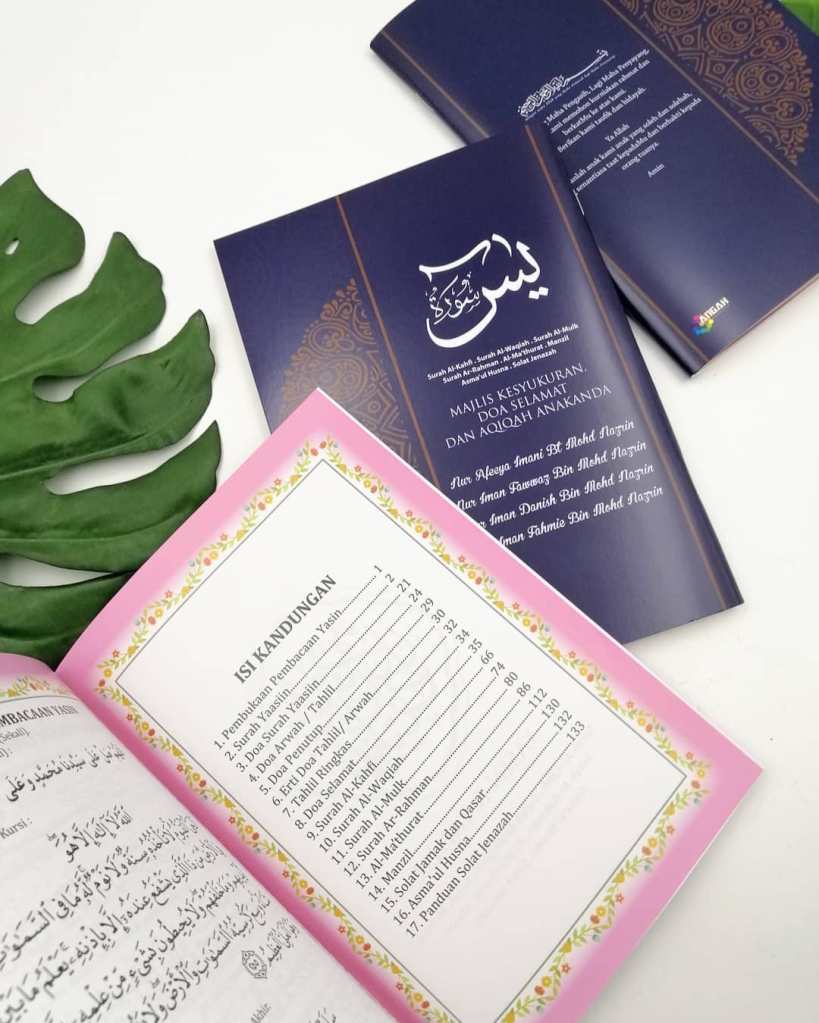 Maha Pengasih, Lagi Maha Penyayang,
ami memohon kurniakan rahmat dan
berkatMu ke atas kami.
Berikan kami taufik dan hidayah.
Ya Allah
anlah anak kami anak yang soleh dan solehah,
senantiasa taat kepadaMu dan berbakti kepada
orang tuanya.
Amin
ANGAH
يس
سورة
Surah Al-Kahfi . Surah Al-Waqiah . Surah Al-Mulk
Surah Ar-Rahman . Al-Ma'thurat . Manzil
Asma'ul Husna . Solat Jenazah
MAJLIS KESYUKURAN,
DOA SELAMAT
DAN AQIQAH ANAKANDA
Nur Afeeya Imani Bt Mohd Nazrin
Nur Iman Fawwaz Bin Mohd Nazrin
Iman Danish Bin Mohd Nazrin
Iman Fahmie Bin Mohd Nazrin
ISI KANDUNGAN
1. Pembukaan Pembacaan Yasin.......... 1
2. Surah Yaasiin.......... 2
3. Doa Surah Yaasiin.......... 21
4. Doa Arwah / Tahlil.......... 24
5. Doa Penutup.......... 29
6. Erti Doa Tahlil/ Arwah.......... 30
7. Tahlil Ringkas.......... 32
8. Doa Selamat.......... 34
9. Surah Al-Kahfi.......... 35
10. Surah Al-Waqiah.......... 66
11. Surah Al-Mulk.......... 74
12. Surah Ar-Rahman.......... 80
13. Al-Ma'thurat.......... 86
14. Manzil.......... 112
15. Solat Jamak dan Qasar.......... 130
16. Asma'ul Husna.......... 132
17. Panduan Solat Jenazah.......... 133
MBACAAN YASIN
Sekali)
عَلَى سَيِّدِنَا مُحَمَّدٍ وَعَلَى
Kursi :
اللَّهُ لَا إِلَٰهَ إِلَّا هُوَ
سِنَةٌ وَلَا نَوْمٌ لَّهُ مَا فِي السَّمَاوَاتِ
يَشْفَعُ عِندَهُ إِلَّا بِإِذْنِهِ يَعْلَمُ مَا بَيْنَ
وَلَا يُحِيطُونَ بِشَيْءٍ مِّنْ عِلْمِهِ